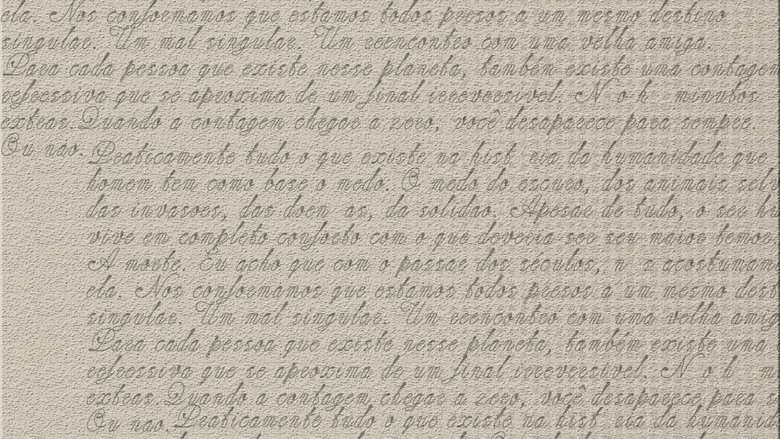 ela. Nos conformamos que estamos todos presos a um mesmo destino
singular. Um mal singular. Um reencontro com uma velha amiga.
Para cada pessoa que existe nesse planeta, também existe uma contagem
regressiva que se aproxima de um final irreversivel. N o h minutos
extras. Quando a contagem chegar a zero, você desaparece para sempre.
Ou nao. Praticamente tudo o que existe na hist ria da humanidade que
homem tem como base o medo. O medo do escuro, dos animais sel
das invasoes, das doen as, da solidao. Apesar de tudo, o ser h
vive em completo conforto com o que deveria ser seu maior temor
A morte. Eu acho que com o passar dos séculos, n s acostumam
ela. Nos conformamos que estamos todos presos a um mesmo dest
singular. Um mal singular. Um reencontro com uma velha amig
Para cada pessoa que existe nesse planeta, também existe uma
regressiva que se aproxima de um final irreversivel. N o h m
extras. Quando a contagem chegar a zero, você desaparece para s
Ou nao. Praticamente tudo o que existe na hist ria da humanid